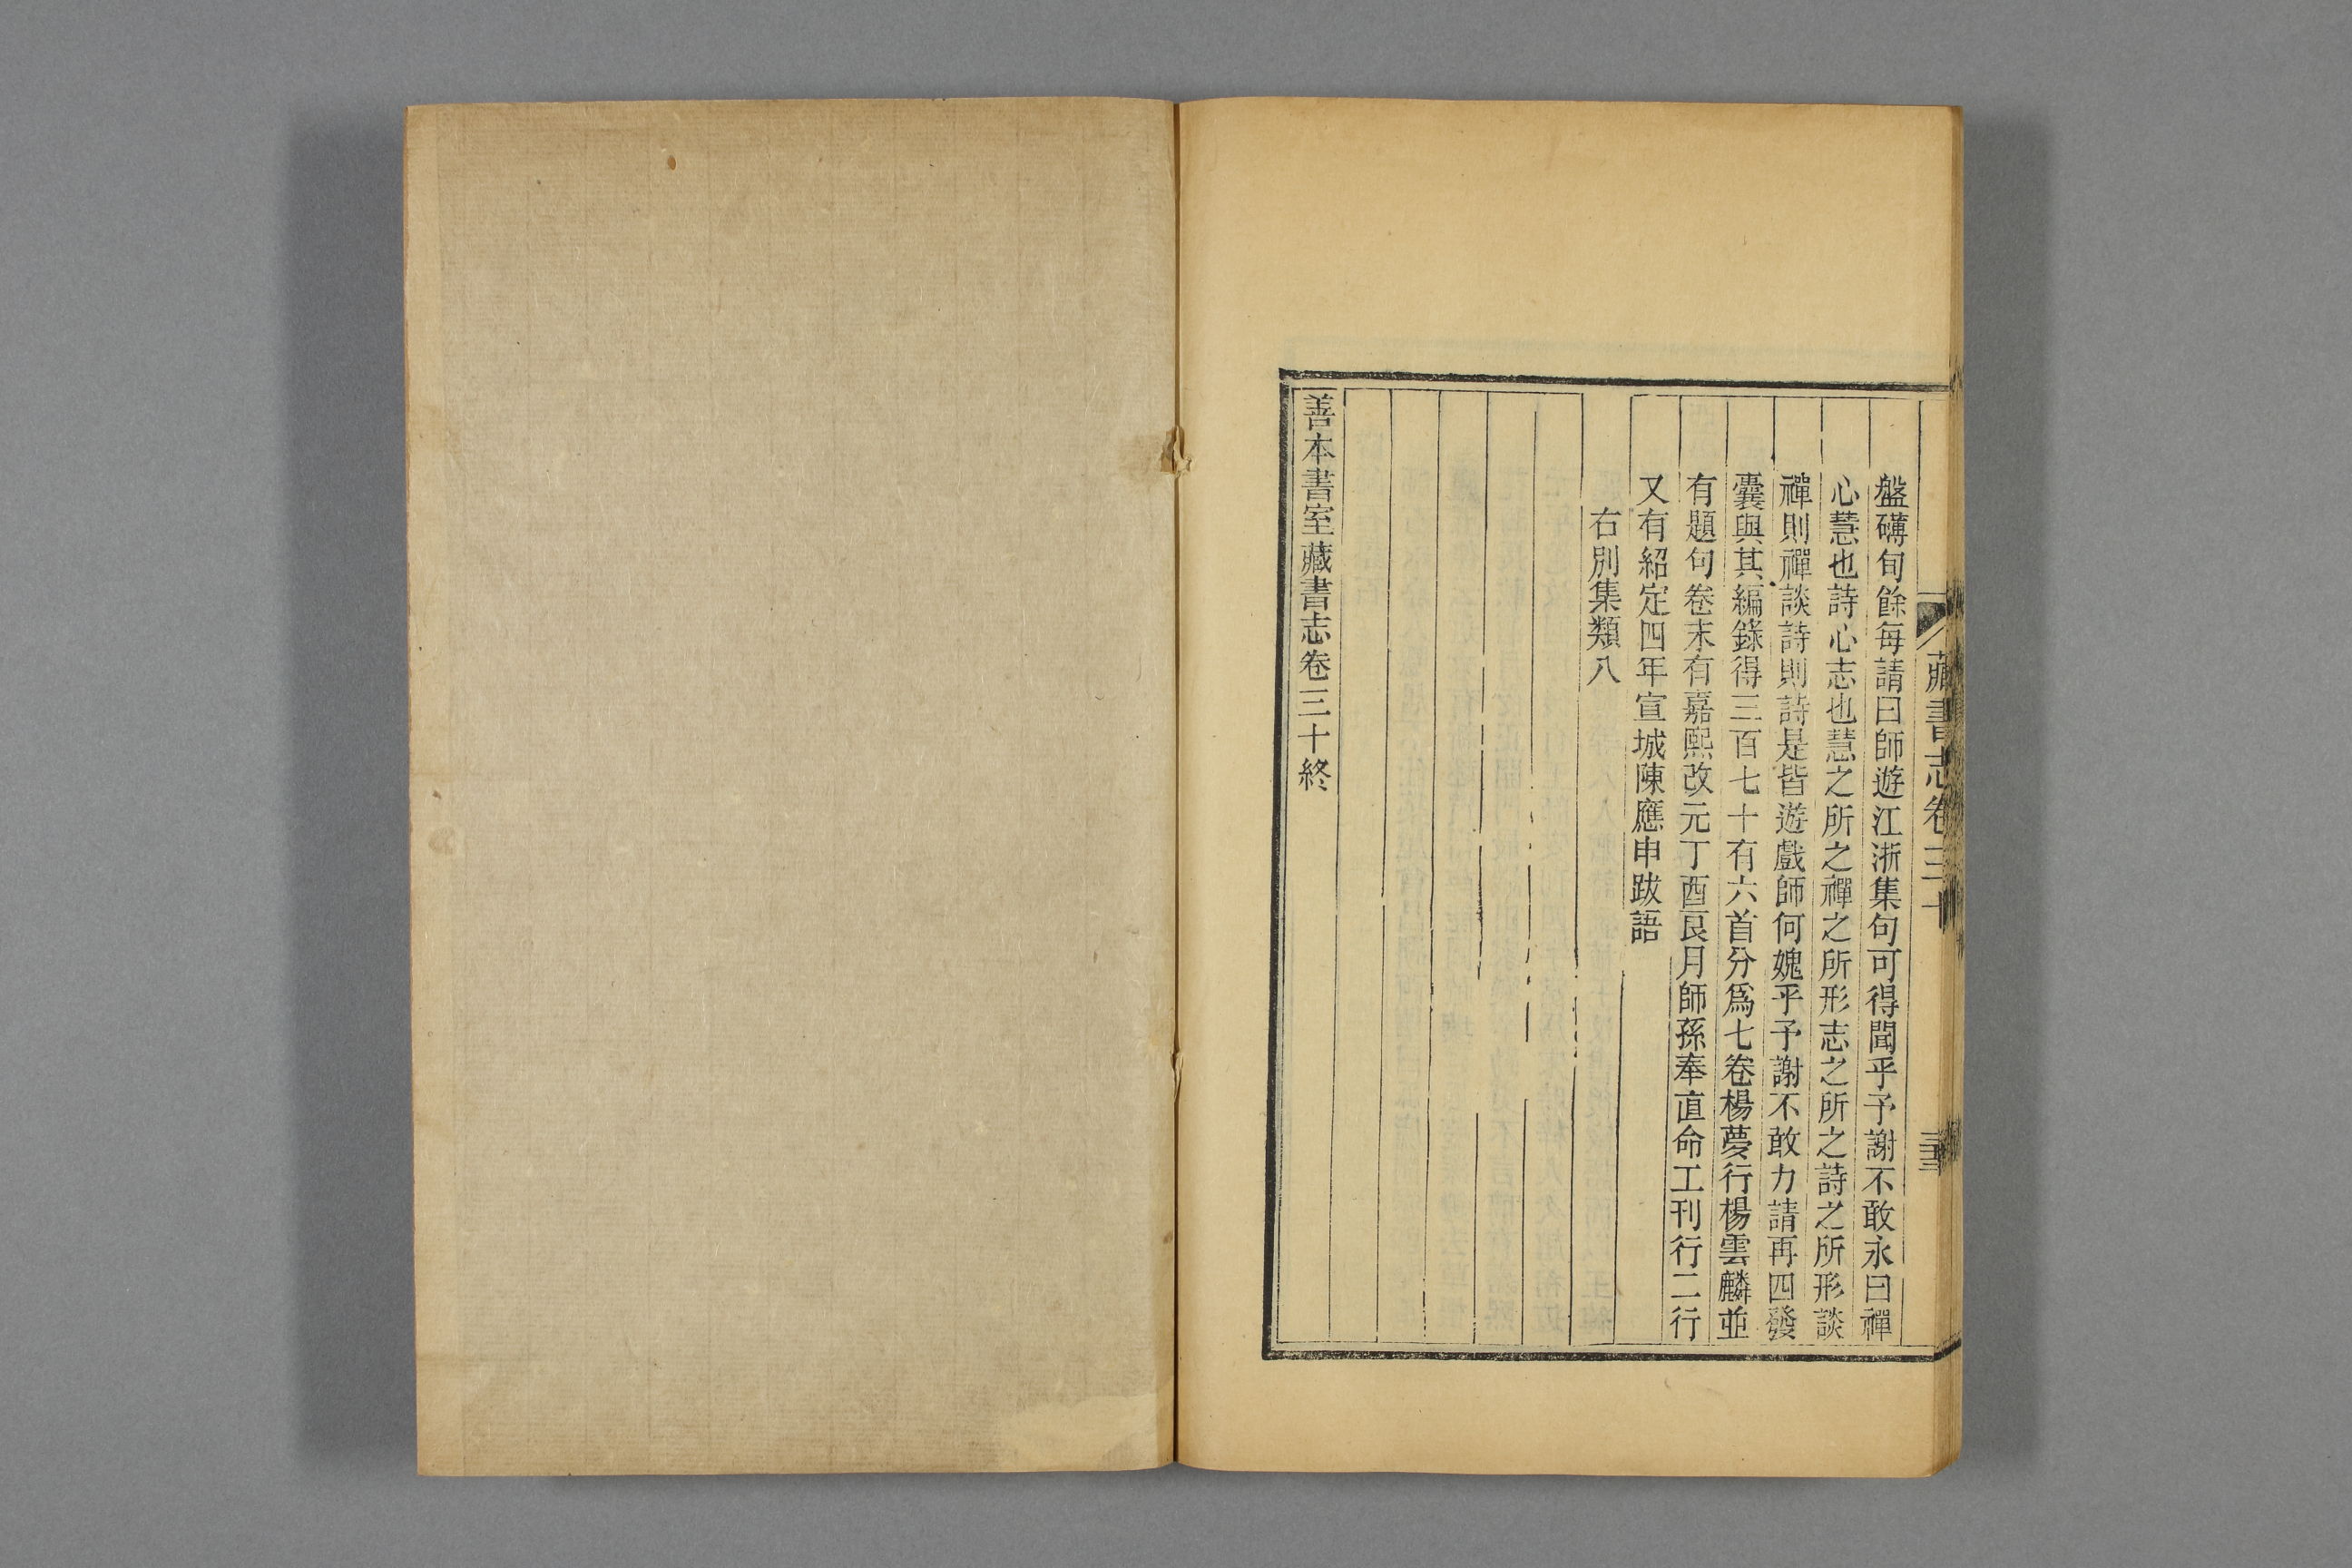 藏書志卷三十
盤礴旬餘每請曰師遊江浙集句可得聞乎予謝不敢永曰禪
心慧也詩心志也慧之所之禪之所形志之所之詩之所形談
禪則禪談詩則詩是皆遊戲師何媿乎予謝不敢力請再四發
囊與其編錄得三百七十有六首分爲七卷楊夢行楊雲麟並
有題句卷末有嘉熙改元丁酉艮月師孫奉直命工刊行二行
又有紹定四年宣城陳應申跋語
右別集類八
善本書室藏書志卷三十終